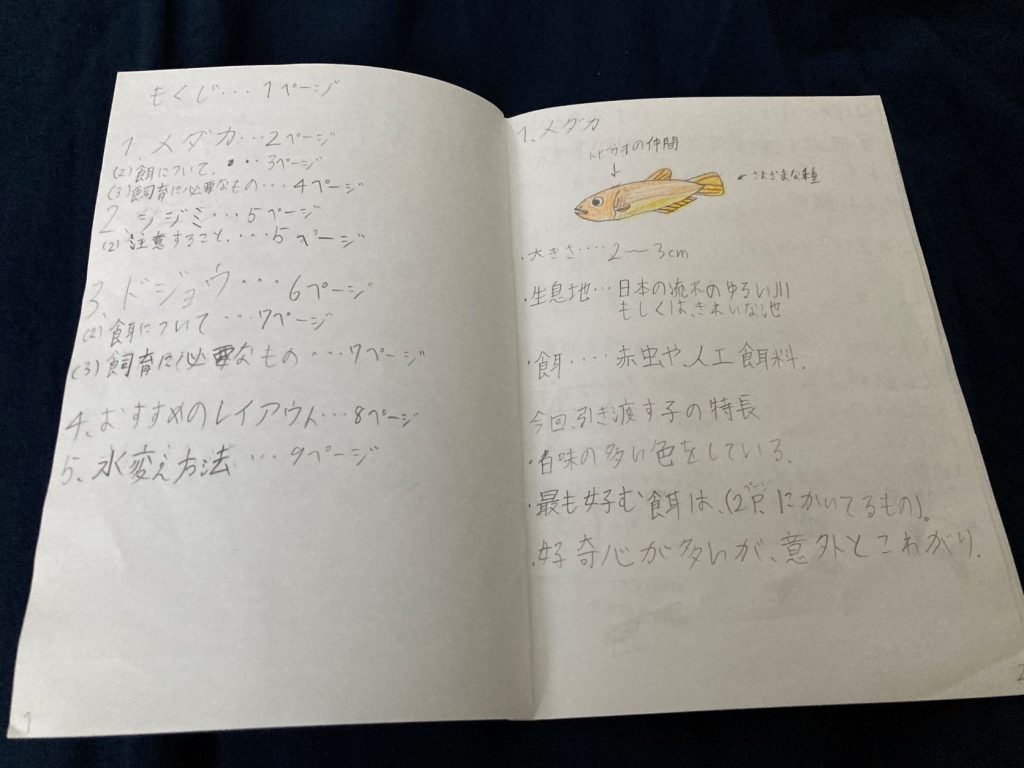 もくじ・・・1ページ
1.メダカ・・・2ページ
(2)餌について、・・・3ページ
(3)飼育に必要なもの・・・4ページ
2.シジミ・・・5ページ
(2)注意すること、・・・・5ページ
3.ドジョウ・・・6ページ
(2)餌について・・・7ページ
(3)飼育に必要なもの・・・7ページ
4.おすすめのレイアウト・・・8ページ
5.水変え方法・・・9ページ
1
1.メダカ
トビウオの仲間
さまざまな種
・大きさ・・・・2〜3cm
・生息地・・・日本の流れのゆるい川
もしくは、きれいな池
・餌・・・・赤虫や人工餌料.
今回、引き渡す子の特長
・白味の多い色をしている.
・最も好む餌は、(2P.にかいてるもの)。
・好奇心が多いが、意外とこわがり.
2